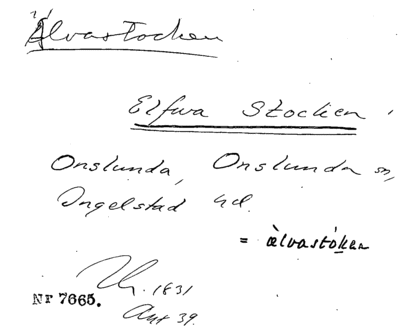 Älvastocken
Elfwa Stocken
Onslunda, Onslunda sn,
Ingelstad hd.
= àlvastóken
1831
Nr 7665.
Akt 39.